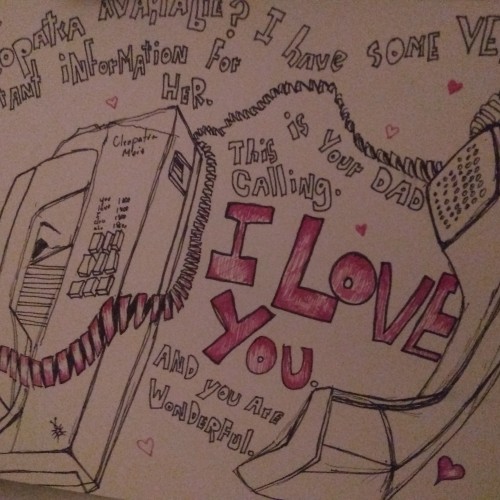 opatra AVAILABLE? I have SOME VE
tant iNformation for
HER.
Cleopatra
This is Your DAD
Calling.
I LOVE
YOU.
AND YOU ARE
WONDERfUL.